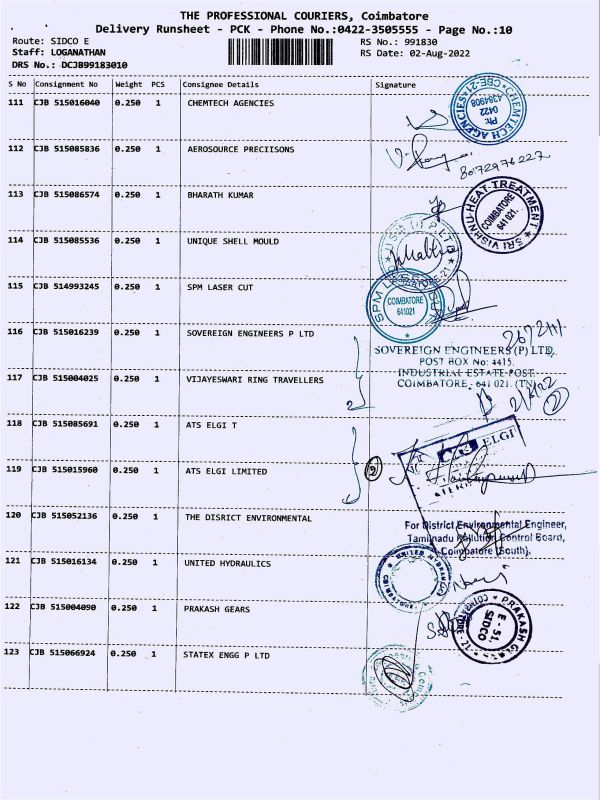 THE PROFESSIONAL COURIERS, Coimbatore
Delivery Runsheet - PCK - Phone No.:0422-3505555 - Page No.:10
Route: SIDCO E
RS No.: 991830
Staff: LOGANATHAN
RS Date: 02-Aug-2022
DRS No.: DCJB99183010
S No Consignment No Weight PCS Consignee Details Signature
111 CJB 515016040 0.250 1 CHEMTECH AGENCIES
CHEMTECH AGENCIES CBE-21
Ph: 0422 4384908
112 CJB 515085836 0.250 1 AEROSOURCE PRECIISONS
8072976227
113 CJB 515086574 0.250 1 BHARATH KUMAR
SRI VISHNU HEAT TREATMENT
COIMBATORE 641 021.
114 CJB 515085536 0.250 1 UNIQUE SHELL MOULD
USM (I) P LTD
115 CJB 514993245 0.250 1 SPM LASER CUT
SPM LASER
COIMBATORE
641021
116 CJB 515016239 0.250 1 SOVEREIGN ENGINEERS P LTD
SOVEREIGN ENGINEERS (P) LTD,
POST BOX No: 4415,
INDUSTRIAL ESTATE POST
COIMBATORE - 641 021. (TN)
117 CJB 515004025 0.250 1 VIJAYESWARI RING TRAVELLERS
2
2
118 CJB 515085691 0.250 1 ATS ELGI T
ELGI
119 CJB 515015960 0.250 1 ATS ELGI LIMITED
2
120 CJB 515052136 0.250 1 THE DISRICT ENVIRONMENTAL
For District Environmental Engineer,
Tamilnadu Pollution Control Board,
Coimbatore (South).
121 CJB 515016134 0.250 1 UNITED HYDRAULICS
UNITED HYDRAULICS
122 CJB 515004090 0.250 1 PRAKASH GEARS
PRAKASH GEARS
E - 51, SIDCO
123 CJB 515066924 0.250 1 STATEX ENGG P LTD